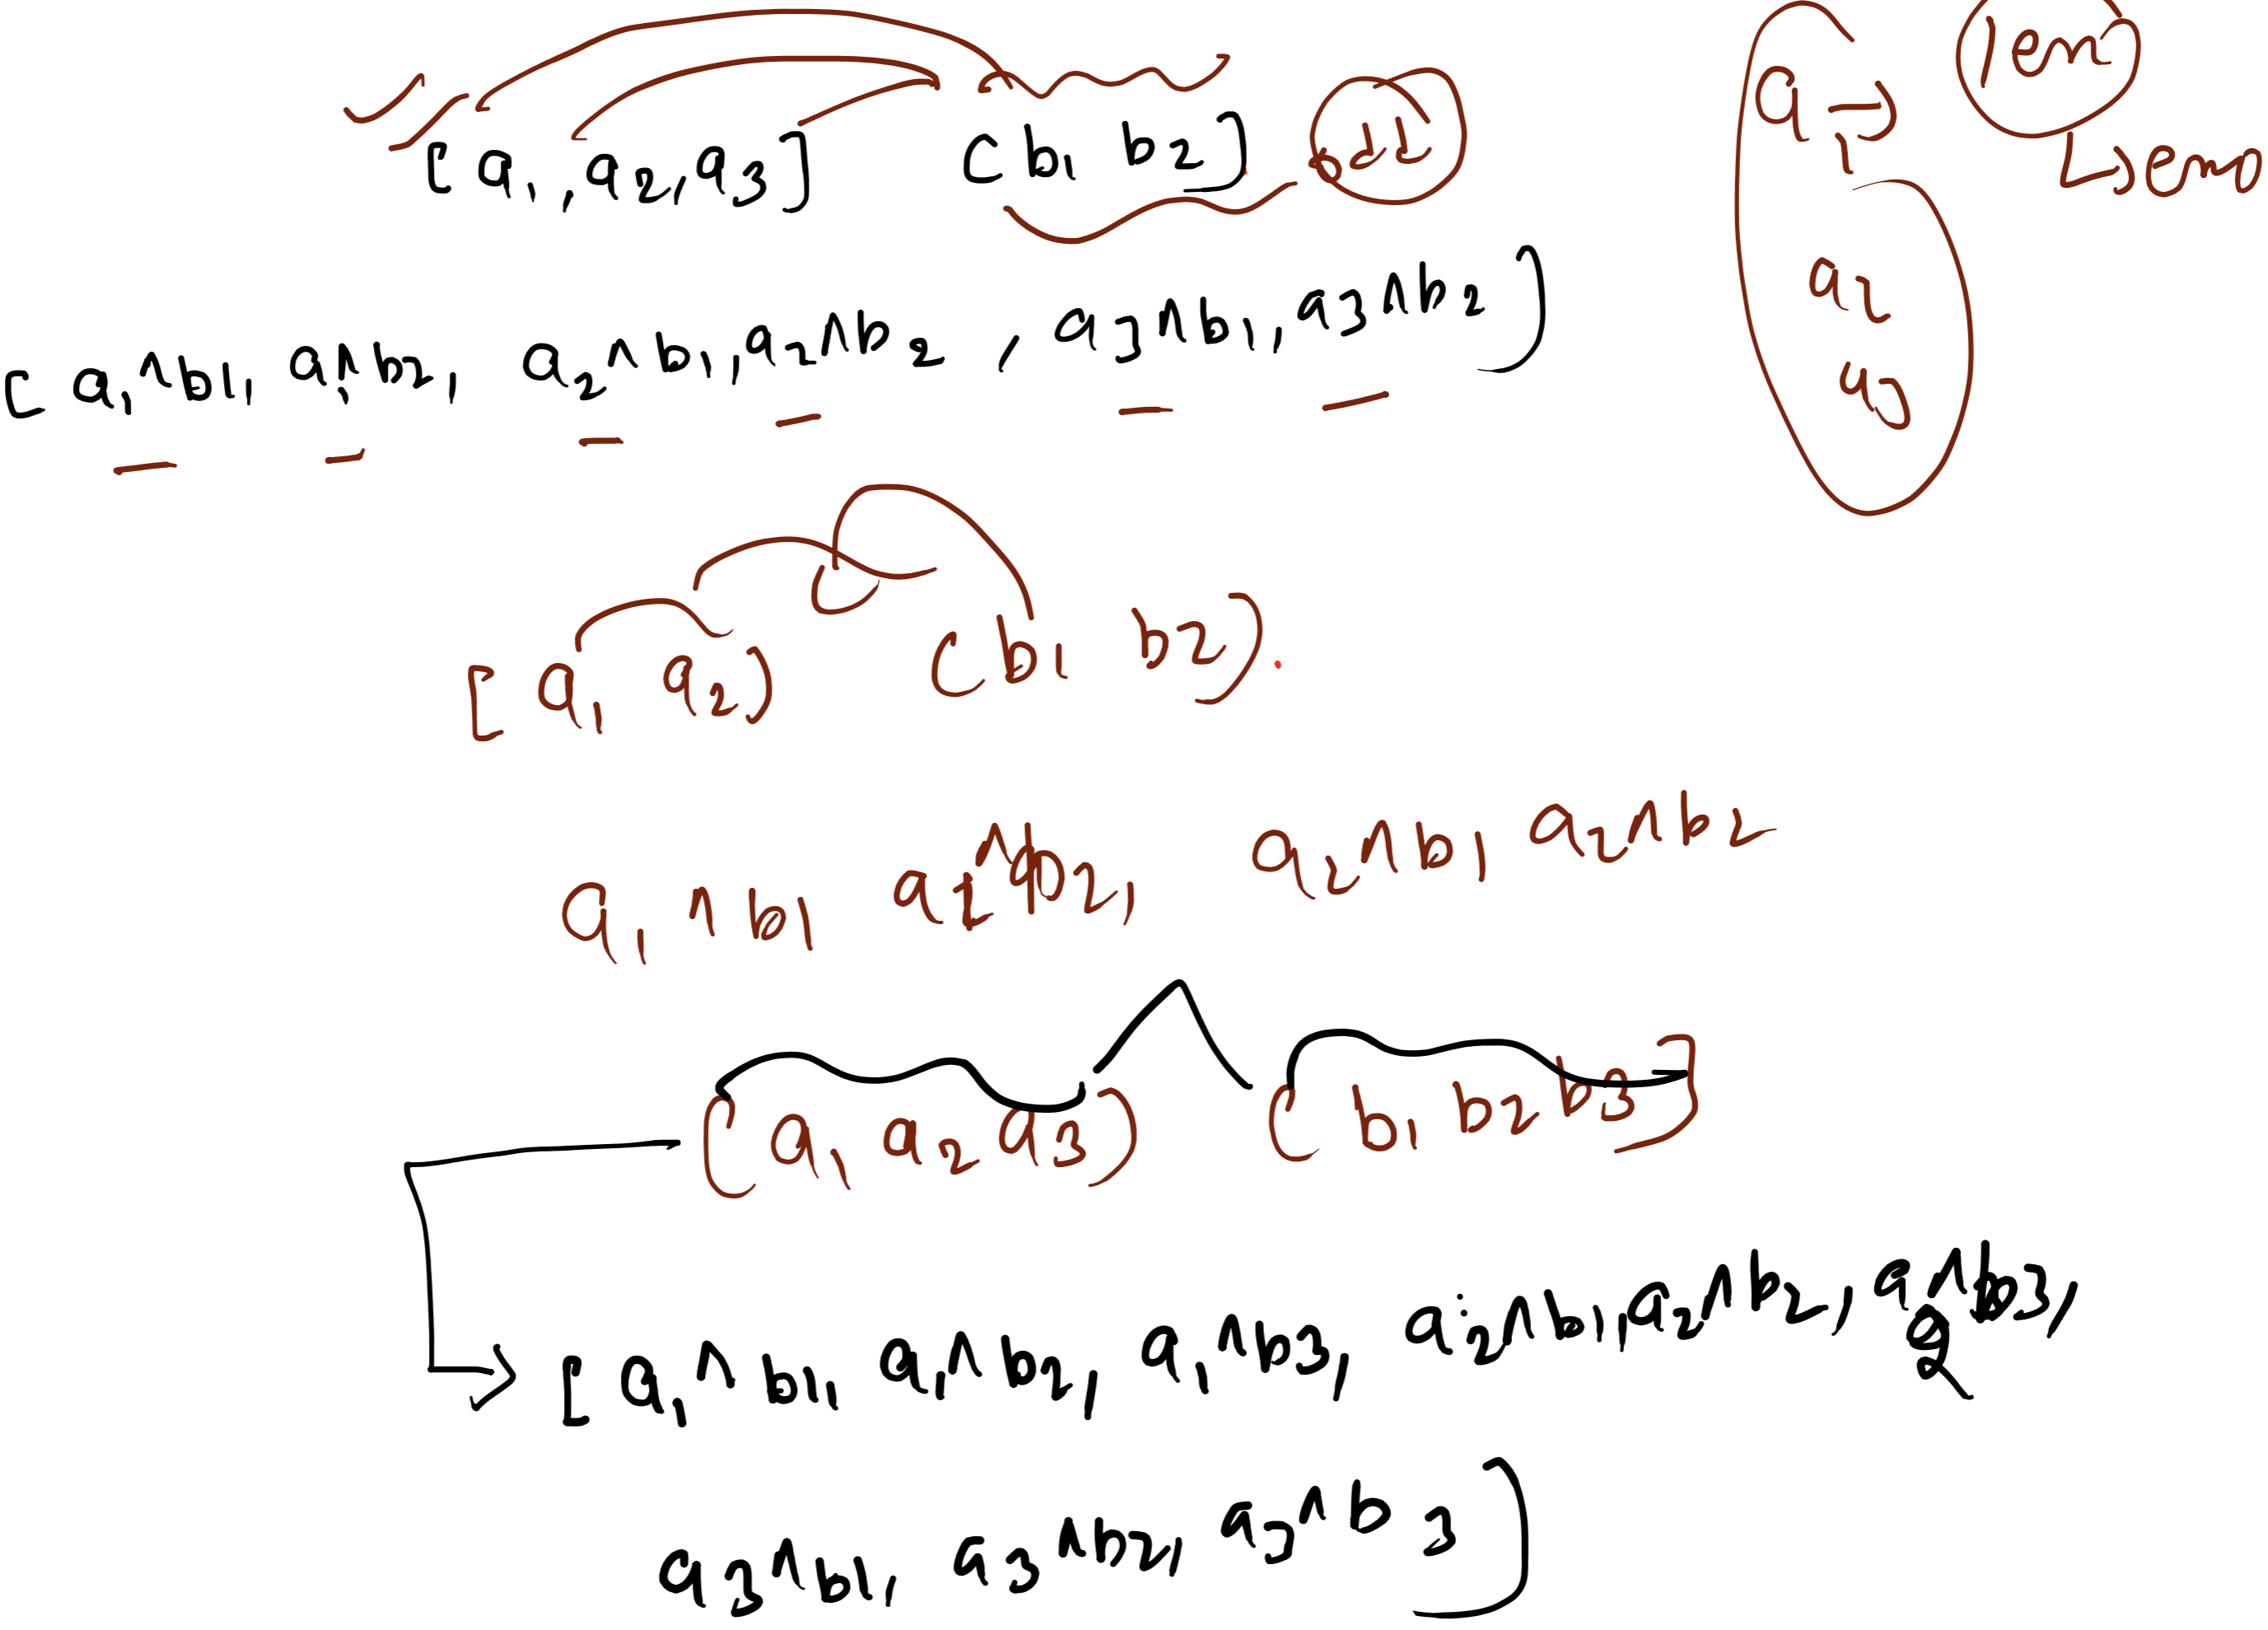 [ a1, a2, a3 ] [ b1 b2 ]
a1 → len
→ 2em
a2
a3
[ a1^b1, a1^b2, a2^b1, a2^b2, a3^b1, a3^b2 ]
[ a1 a2 ) ( b1 b2 ).
a1^b1 a2^b2, a2^b1 a2^b2
( a1 a2 a3 ) ^ ( b1 b2 b3 ]
[ a1^b1, a1^b2, a1^b3, a2^b1, a2^b2, a2^b3,
a3^b1, a3^b2, a3^b3 ]